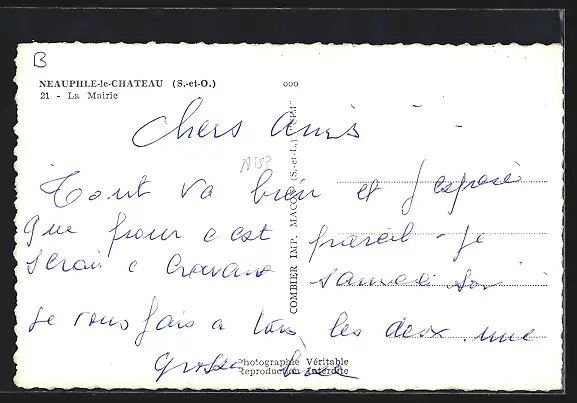 B
NEAUPHLE-le-CHATEAU (S.-et-O.)
21 - La Mairie
Chers Amis
N152
Tout va bien et j'espère
que pour c'est pareil - je
serai a samedi soir
je vous fais a tous les deux une
grosse bise
COMBIER IMP. MACON (S.-et-L.)
Photographie Véritable
Reproduction Interdite